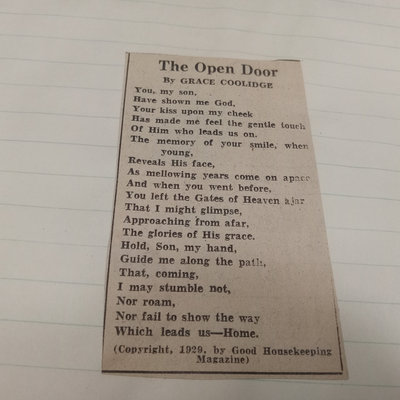 The Open Door
By GRACE COOLIDGE
You, my son,
Have shown me God.
Your kiss upon my cheek
Has made me feel the gentle touch
Of Him who leads us on.
The memory of your smile, when
young,
Reveals His face,
As mellowing years come on apace
And when you went before,
You left the Gates of Heaven ajar
That I might glimpse,
Approaching from afar,
The glories of His grace.
Hold, Son, my hand,
Guide me along the path,
That, coming,
I may stumble not,
Nor roam,
Nor fail to show the way
Which leads us—Home.
(Copyright, 1929, by Good Housekeeping
Magazine)